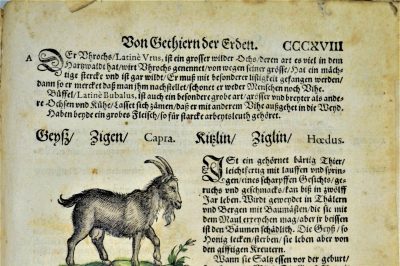 Von Gethiern der Erden. CCCXVIII
A
Der Vhrochs/Latinè Vrus, ist ein grosser wilder Ochs/deren art es viel in dem
Hartzwaldt hat/wirt Vhrochs genennet/von wegen seiner grösse/Hat ein mäch-
tige stercke vnd ist gar wildt/Er muß mit besonderer listigkeit gefangen werden/
dann so er mercket daß man jhm nachstellet/schonet er weder Menschen noch Vihe.
Büffel/Latinè Bubalus, ist auch ein besondere grobe art/grösser vnd breyter als ande-
re Ochsen vnd Kühe/Lasset sich zämen/daß er mit anderem Vihe außgehet in die Weyd.
Haben beyd ein grobes Fleisch/so für starcke arbeytsleuth gehöret.
Geyß/ Zigen/ Capra. Kitzlin/ Ziglin/ Hœdus.
Ist ein gehörnet bärtig Thier/
leichtfertig mit lauffen vnd sprin-
gen/eines scharpffen Gesichts/ge-
ruchs vnd geschmacks/kan biß in zwölff
Jar leben. Wirdt geweydet in Thälern
vnd Bergen mit Baumästen/die sie mit
dem Maul erreychen mag/aber jr beissen
ist den Bäumen schädlich. Die Geyß/so
Honig lecken/sterben/sie leben aber von
den gifftigen Kreutern.
Wann sie Saltz essen vor der geburt/